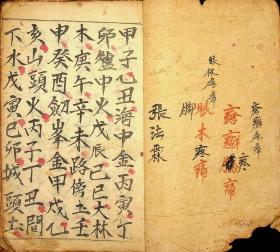 瘡癬
眼木疼痛
脚
張法霖
甲子乙丑海中金丙寅丁
卯爐中火戊辰己巳大林
木庚午辛未路傍土壬
申癸酉釼峯金甲戌乙
亥山頭火丙子丁丑澗
下水戊寅己卯城頭土